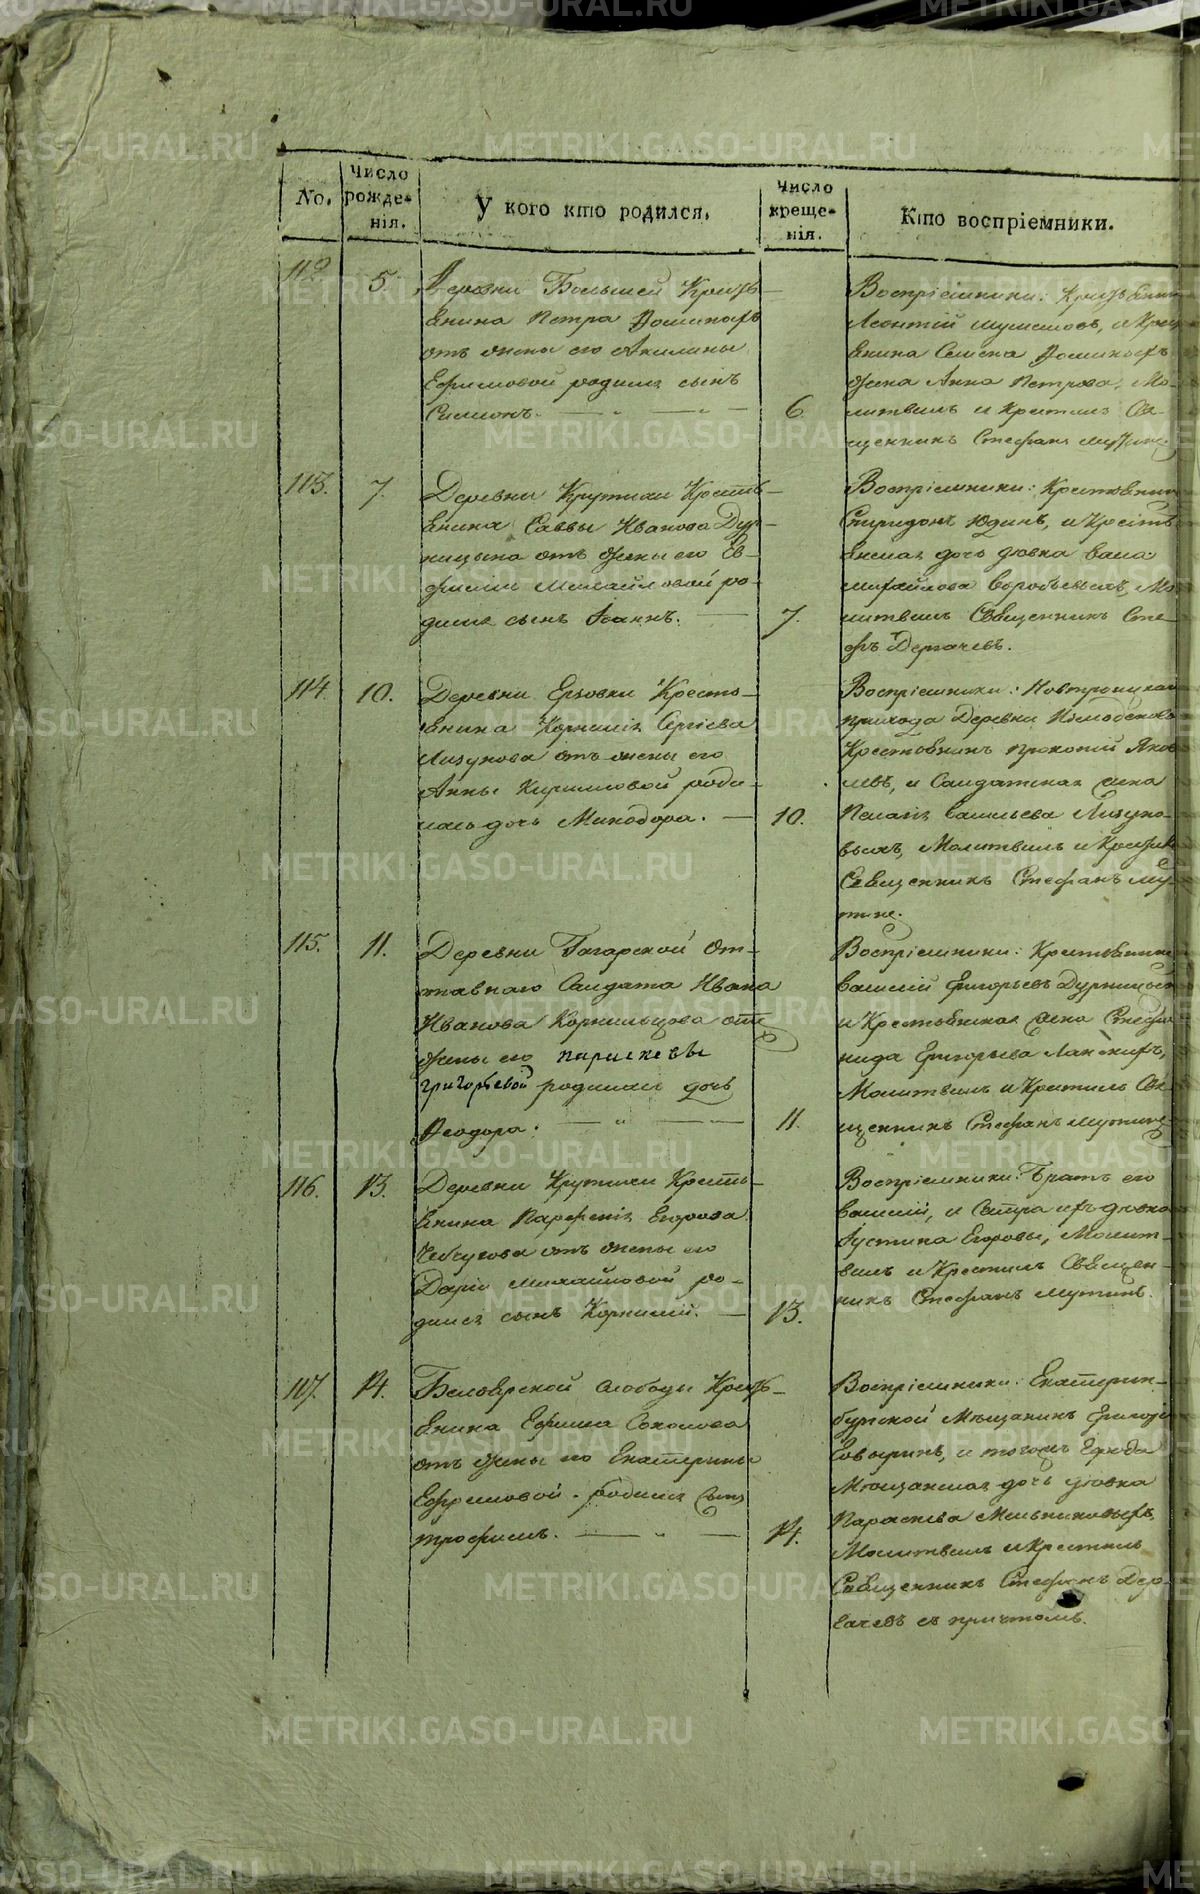 No.
Число рожденія.
У кого кто родился.
Число крещенія.
Кто воспріемники.
112
5.
Деревни Большей Кресть-
янина Петра
отъ жены его Акилины
Ефимовой родился сынъ
Симионъ.
6.
Воспріемники: Крестьянин
Леонтій
янина Семена
жена Анна Петрова, Мо-
литвилъ и Крестилъ Свя-
щенникъ Стефанъ
113.
7.
Деревни Крутихи Кресть-
янина Саввы Иванова Дур-
ницына отъ жены его Ев-
фиміи Михайловой ро-
дился сынъ Іоаннъ.
7.
Воспріемники: Крестьянин
Спиридонъ Юдинъ, и Кресть-
янская дочь дѣвка
Михайлова Воробьевыхъ, Мо
литвилъ Священникъ Сте
фъ Дергачевъ.
114.
10.
Деревни Ерзовки Кресть-
янина Корнилія Сергіева
Лизунова отъ жены его
Анны Кириловой роди-
лась дочь Минодора.
10.
Воспріемники:
прихода Деревни
Крестьянинъ Прокопій Яков
левъ, и Салдатская жена
Пелагія Васильева Лизуно-
выхъ, Молитвилъ и Крестилъ
Священникъ Стефанъ Му-
тинъ.
115.
11.
Деревни Гагарской От-
ставнаго Салдата Ивана
Иванова Корнильцова отъ
жены его парискевы
григорьевой родилась дочь
Феодора.
11.
Воспріемники: Крестьянинъ
Василій Григорьевъ Дурницын
и Крестьянская жена Стефа
нида Григорьева
Молитвилъ и Крестилъ Свя-
щенникъ Стефанъ Мутинъ
116.
13.
Деревни Крутихи Кресть-
янина Парфенія Егорова
отъ жены его
Даріи Михайловой ро-
дился сынъ Корнилій.
13.
Воспріемники: Братъ его
Василій, и Сестра ихъ дѣвка
Іустина Егоровы, Молит-
вилъ и Крестилъ Священ-
никъ Стефанъ Мутинъ.
117.
14.
Белоярской слободы Кресть-
янина Ефима Соколова
отъ жены его Екатерины
Ефремовой родился сынъ
Трофимъ.
14.
Воспріемники: Екатерин-
бургской Мѣщанинъ Григорій
и тогожъ города
Мѣщанская дочь дѣвка
Параскева Мельниковыхъ,
Молитвилъ и Крестилъ
Священникъ Стефанъ Дер-
гачевъ съ причтомъ.
METRIKI.GASO-URAL.RU